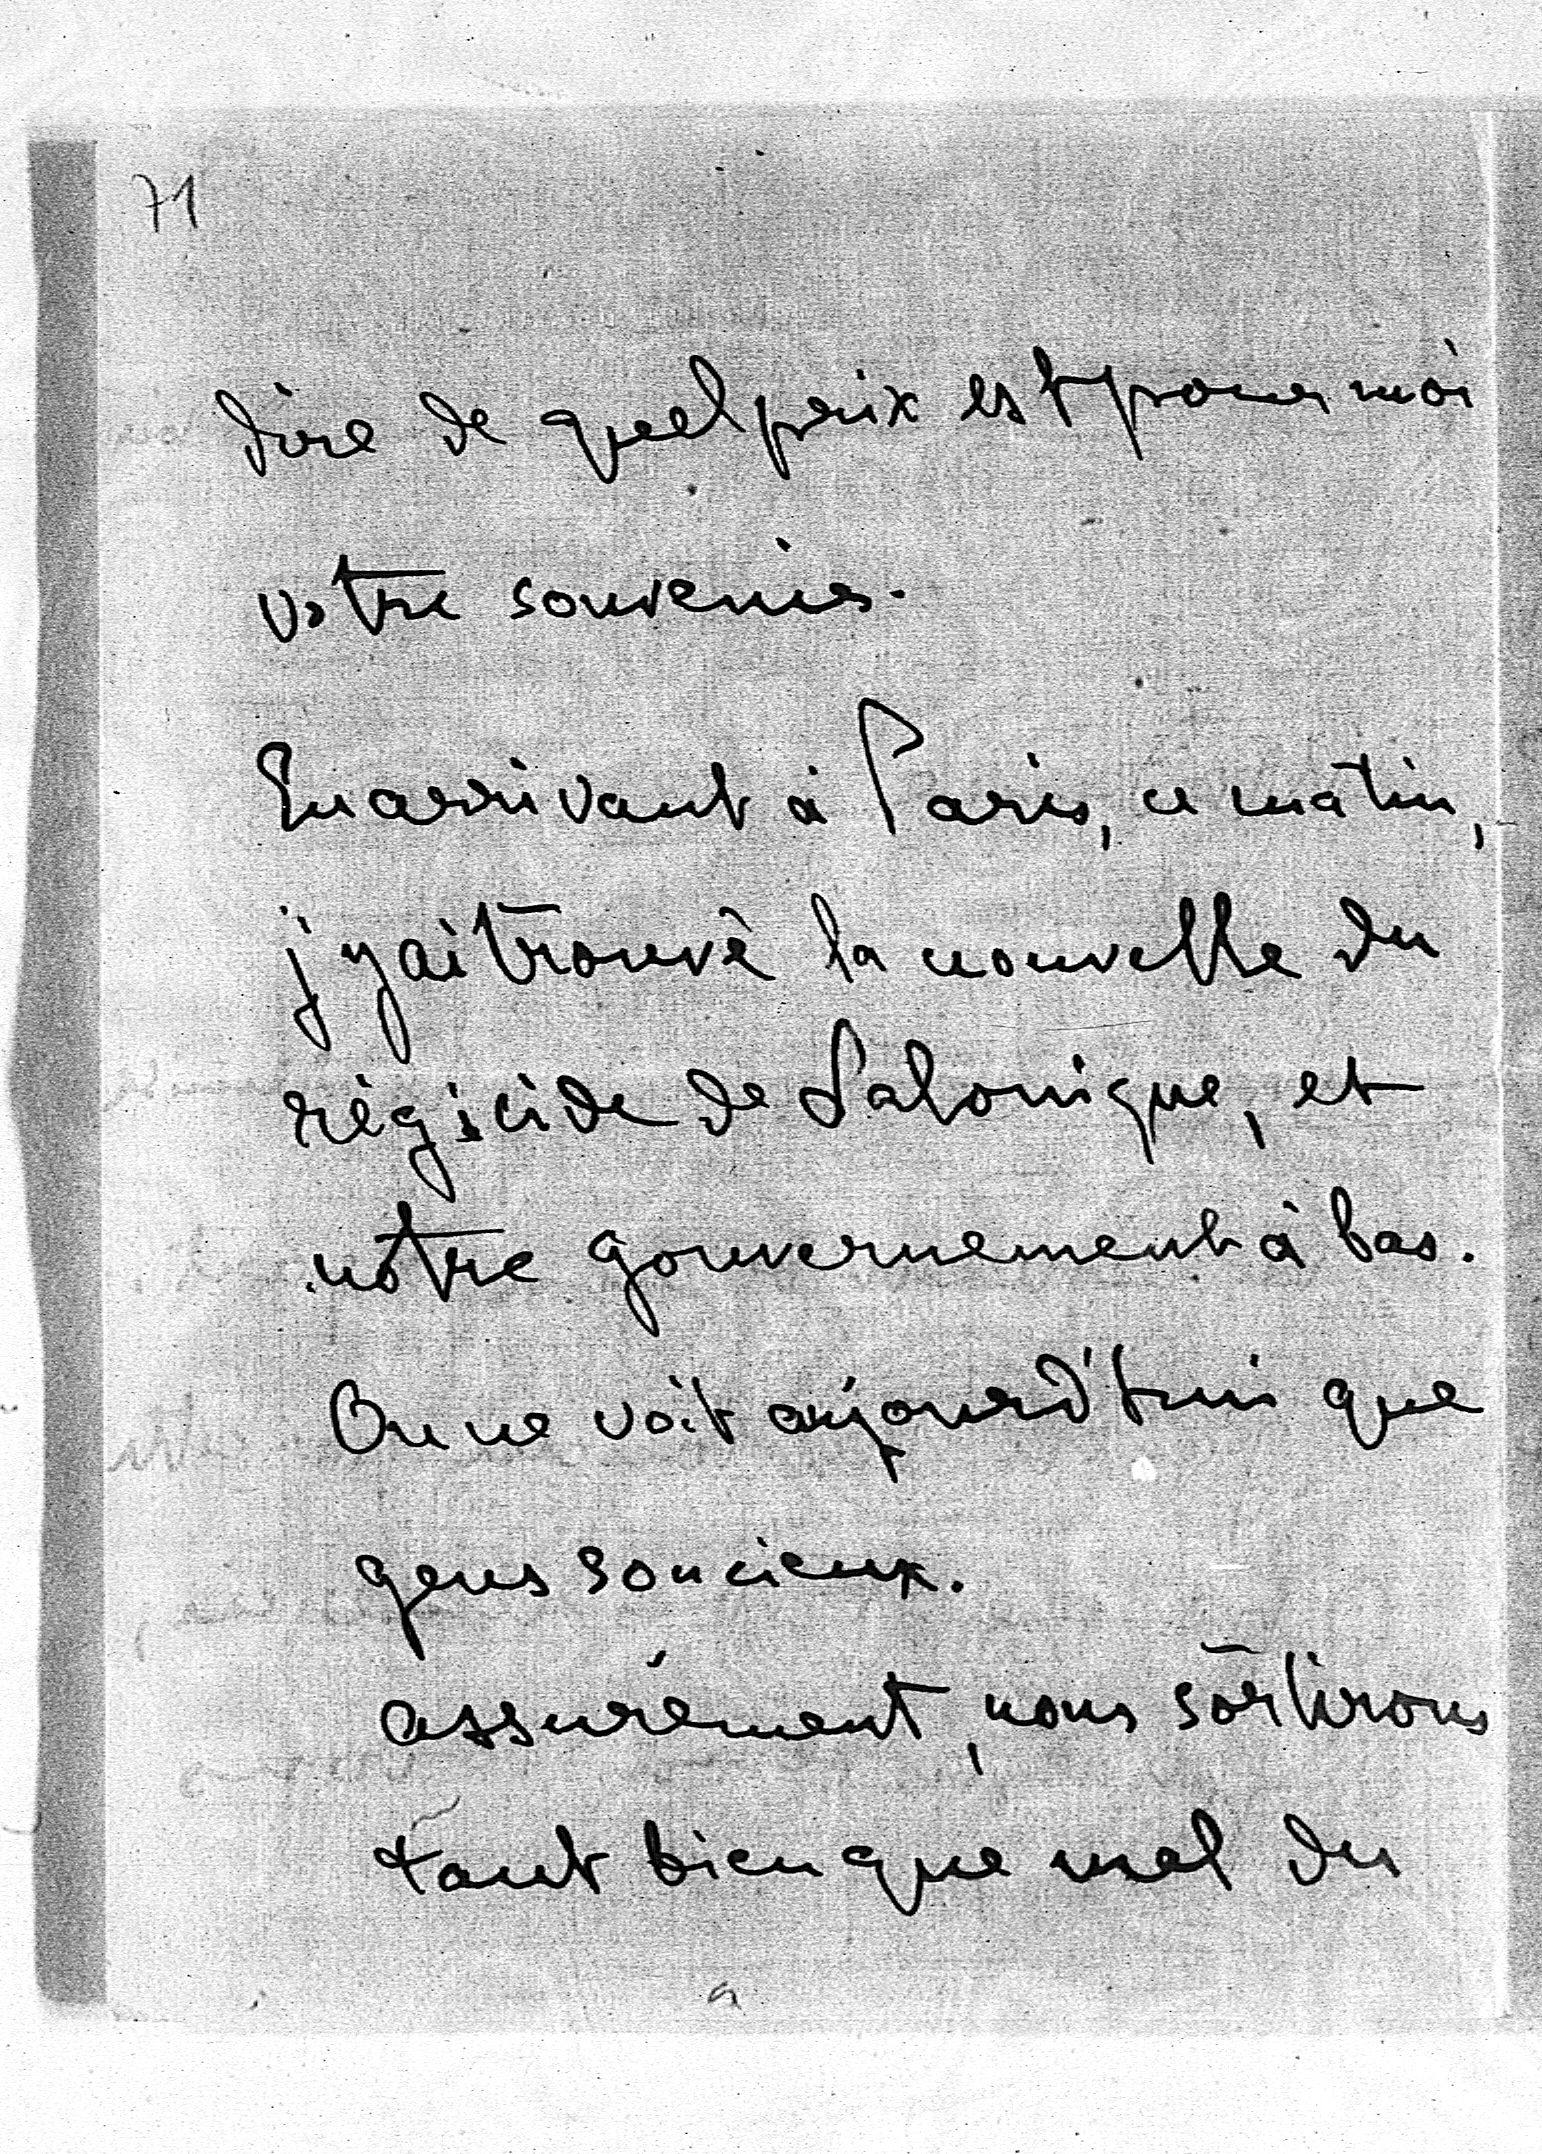 71
dire de quel prix est pour moi
votre souvenir.
En arrivant à Paris, ce matin,
j'y ai trouvé la nouvelle du
régicide de Salonique, et
notre gouvernement à bas.
On ne voit aujourd'hui que
gens soucieux.
assurément, nous sortirons
tant bien que mal du